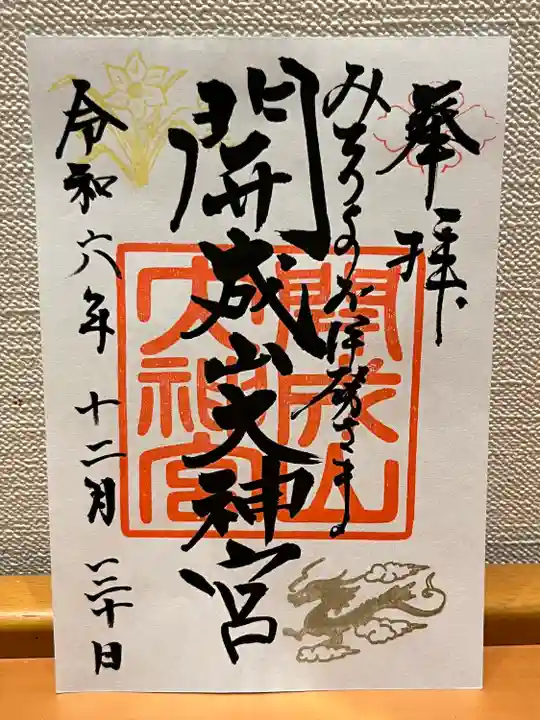 奉拝
みちのくのお伊勢さま
開成山大神宮
令和六年十二月三十日
開成山
大神宮